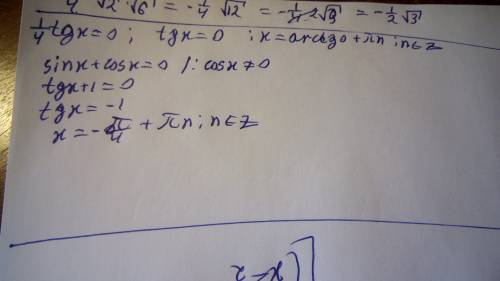 4 √2 · √6 = -1/4 √12 = -1/4 · 2√3 = -1/2 √3
1/4 tgx = 0 ; tgx = 0 ; x = arctg0 + πn ; n∈Z
sinx + cosx = 0 /: cosx ≠ 0
tgx + 1 = 0
tgx = -1
x = -π/4 + πn ; n∈Z